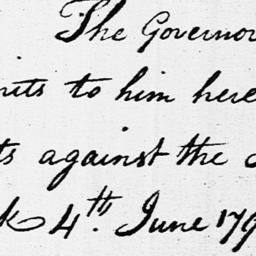 The Governor
to him here
against the
4th. June 179